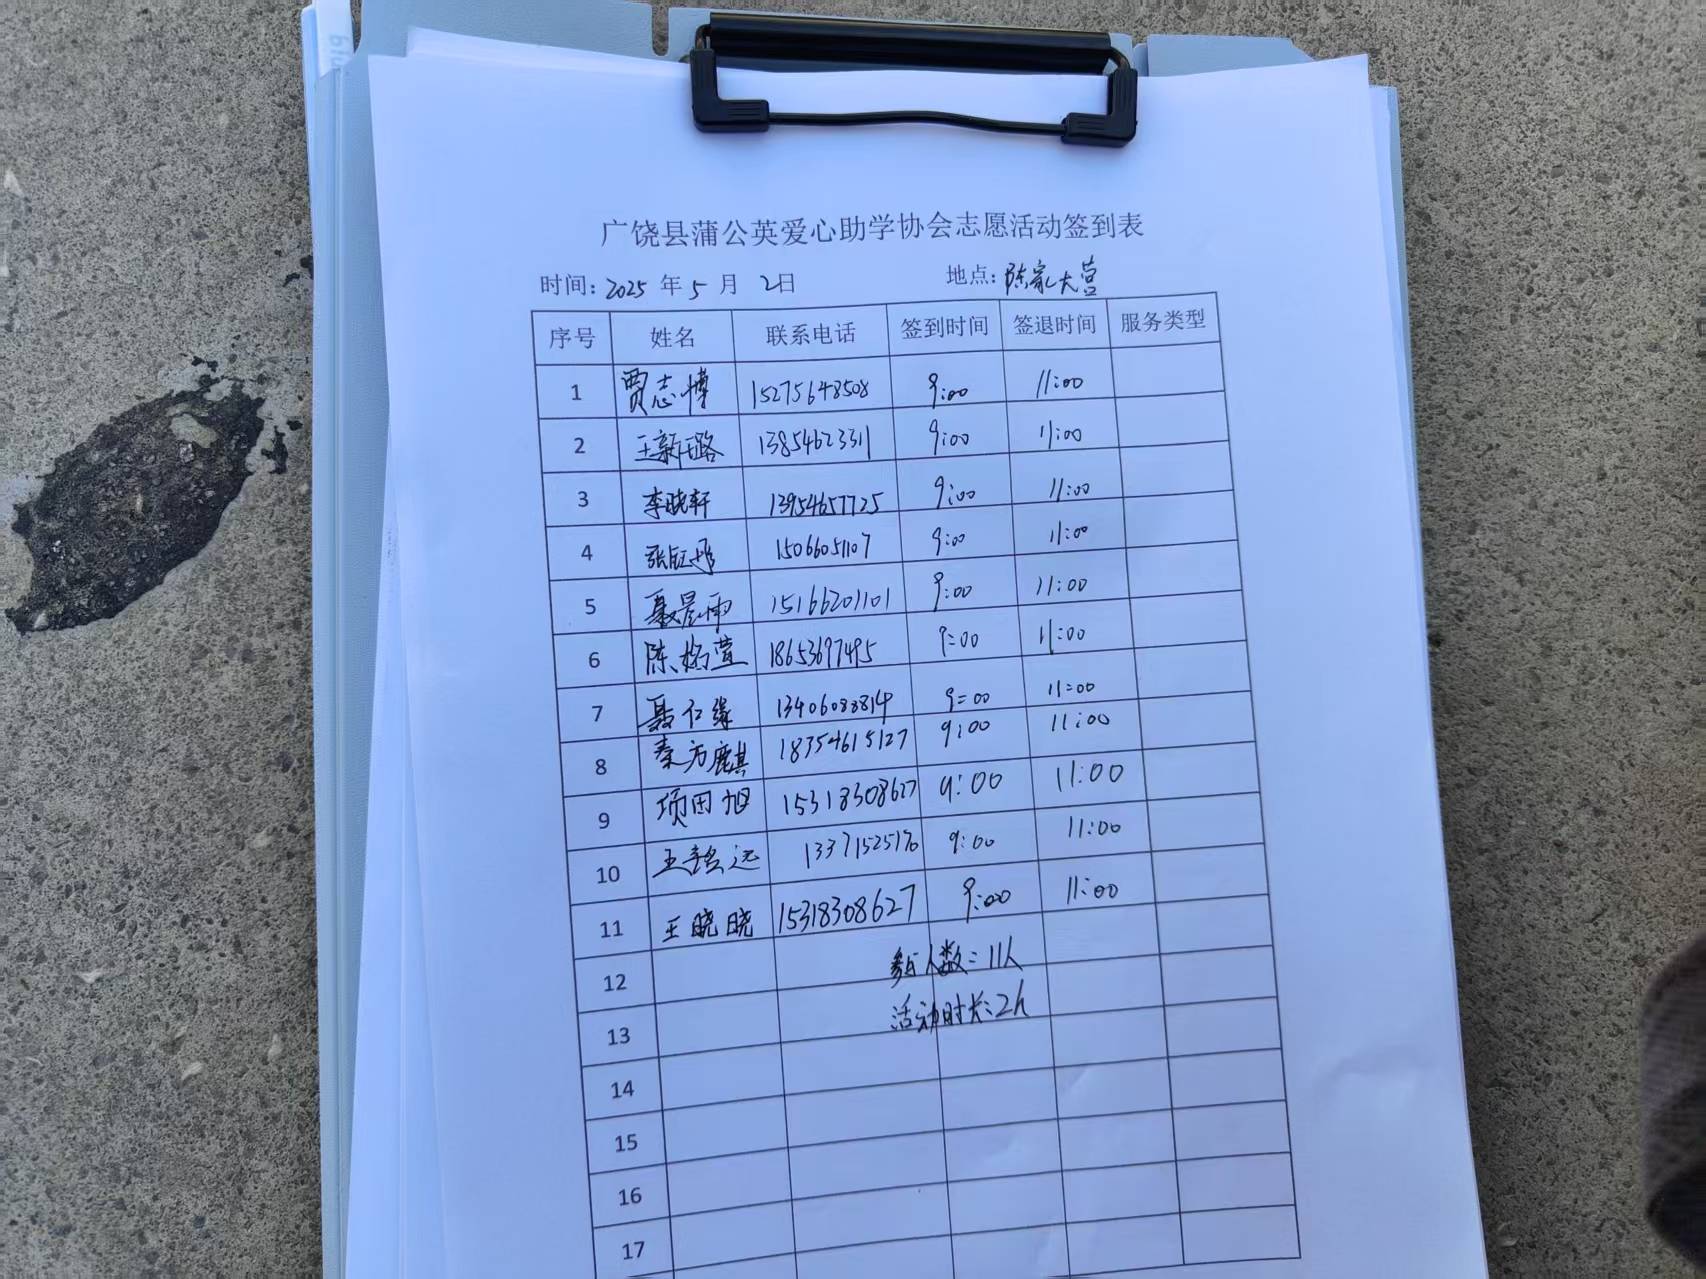 广饶县蒲公英爱心助学协会志愿活动签到表
时间：2025 年 5 月 2日 地点：陈家大营
序号 姓名 联系电话 签到时间 签退时间 服务类型
1 贾志博 15275648508 9:00 11:00
2 王新璐 13854623311 9:00 11:00
3 李晓轩 13954657725 9:00 11:00
4 15066051107 9:00 11:00
5 聂晨雨 15166201101 9:00 11:00
6 18653697495 9:00 11:00
7 聂仁缘 13406088814 9:00 11:00
8 秦方麒 18354615127 9:00 11:00
9 项田旭 15318308627 9:00 11:00
10 13371525176 9:00 11:00
11 王晓晓 15318308627 9:00 11:00
12 参与人数：11人
13 活动时长：2h
14
15
16
17